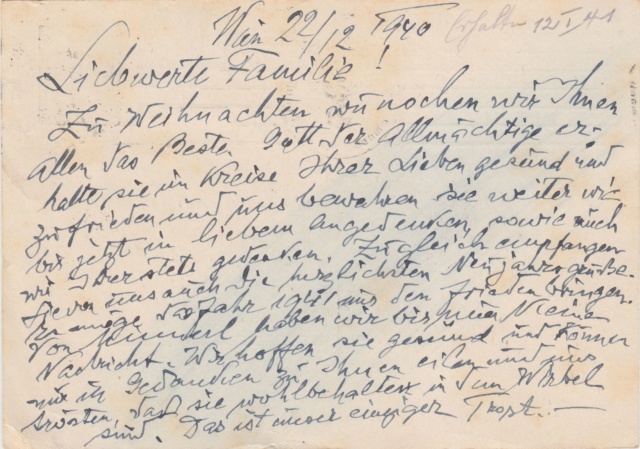 Wien 22/12 1940 Erhalten 12/I/41
Liebwerte Familie!
Zu Weihnachten wünschen wir Ihnen
Allen das Beste Gott der Allmächtige er-
halte sie im Kreise Ihrer Lieben gesund und
zufrieden und uns bewahren sie weiter wie
bis jetzt in liebem Angedenken, sowie auch
wir Ihrer stets gedenken. Zugleich empfangen
Sie von uns auch die herzlichsten Neujahrsgrüße.
Es möge das Jahr 1941 uns den Frieden bringen.
Von haben wir bis nun Keine
Nachricht. Wir hoffen sie gesund und können
nur in Gedanken zu Ihnen eilen und uns
trösten, daß sie wohlbehalten in dem Wirbel
sind. Das ist unser einziger Trost.—